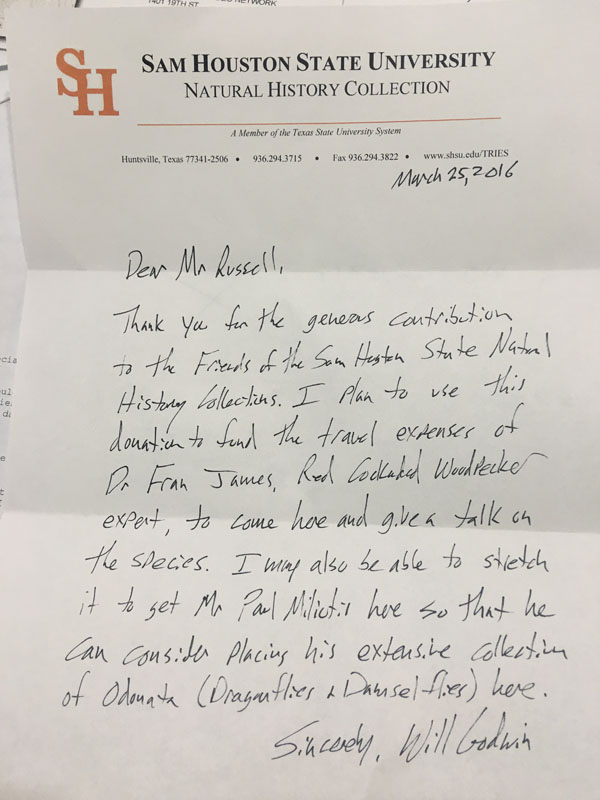 1401 19TH ST
NETWORK
SH
SAM HOUSTON STATE UNIVERSITY
NATURAL HISTORY COLLECTION
A Member of the Texas State University System
Huntsville, Texas 77341-2506 • 936.294.3715 • Fax 936.294.3822 • www.shsu.edu/TRIES
March 25, 2016
Dear Mr Russell,
Thank you for the generous contribution
to the Friends of the Sam Houston State Natural
History Collections. I plan to use this
donation to fund the travel expenses of
Dr Fran James, Red Cockaded Woodpecker
expert, to come here and give a talk on
the species. I may also be able to stretch
it to get Mr Paul Miliotis here so that he
can consider placing his extensive collection
of Odonata (Dragonflies & Damselflies) here.
Sincerely, Will Godwin